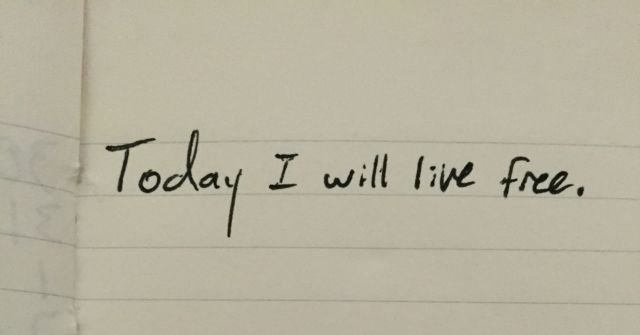 Today I will live free.